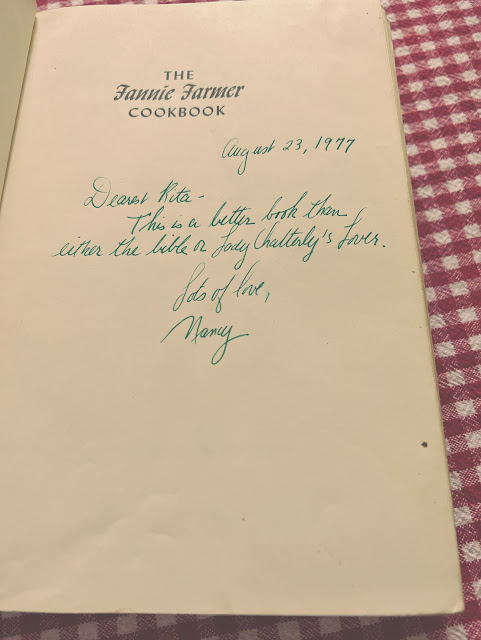 THE
Fannie Farmer
COOKBOOK
August 23, 1977
Dearest Rita -
This is a better book than
either the bible or Lady Chatterly's Lover.
Lots of love,
Nancy